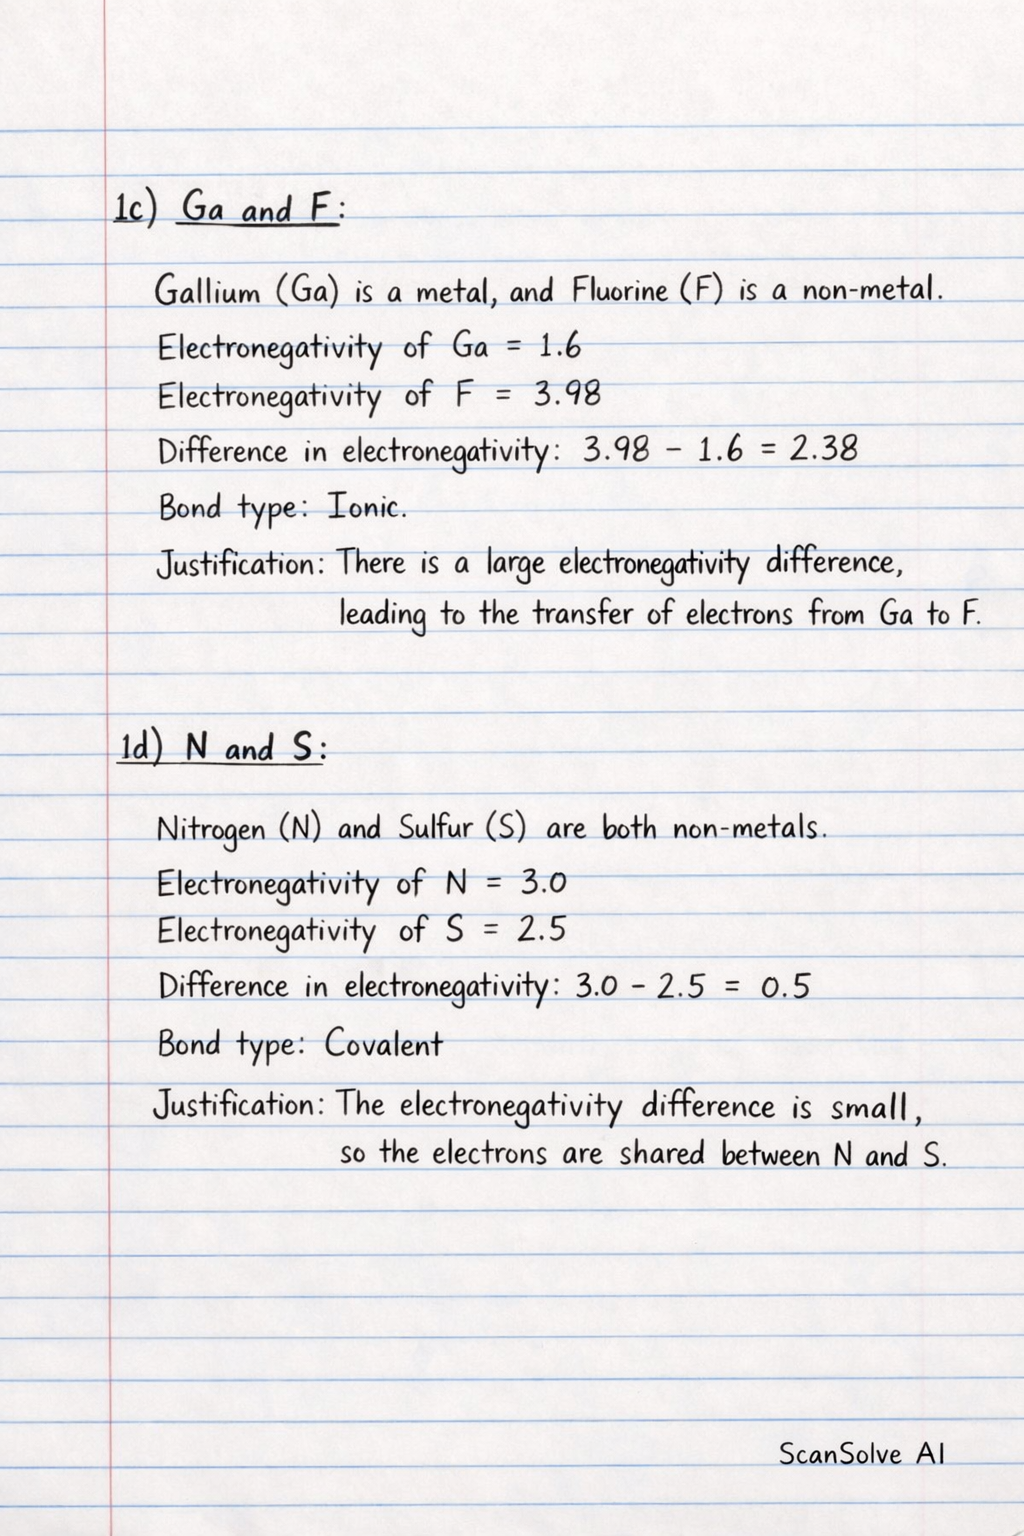 1c) Ga and F:
Gallium (Ga) is a metal, and Fluorine (F) is a non-metal.
Electronegativity of Ga = 1.6
Electronegativity of F = 3.98
Difference in electronegativity: 3.98 - 1.6 = 2.38
Bond type: Ionic.
Justification: There is a large electronegativity difference,
leading to the transfer of electrons from Ga to F.
1d) N and S:
Nitrogen (N) and Sulfur (S) are both non-metals.
Electronegativity of N = 3.0
Electronegativity of S = 2.5
Difference in electronegativity: 3.0 - 2.5 = 0.5
Bond type: Covalent
Justification: The electronegativity difference is small,
so the electrons are shared between N and S.
ScanSolve AI